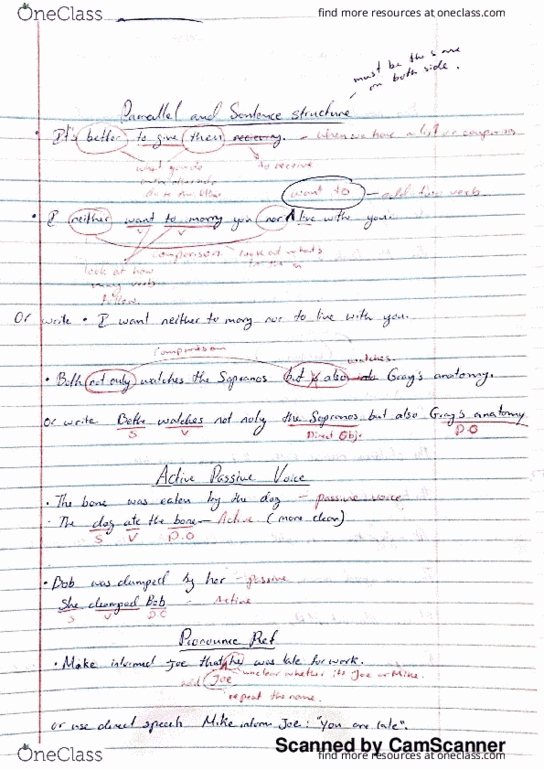 OneClass
find more resources at oneclass.com
must be the same
on both side.
Parallel and Sentence structure
• It's better to give then recieving. - when we have a list or comparison
to receive
want to - add two verb
• I neither want to marry you nor live withe you.
V V
comparison look at whats
look at how
many verb
follow.
Or write • I want neither to marry nor to live with you.
comparison
watches.
• Beth not only watches the Sopranos but also Gray's anatomy.
or write Beth watches not noly the Sopranos but also Gray's anatomy
S V Direct Obj. D.O
Active Passive Voice
• The bone was eaten by the dog - passive voice
• The dog ate the bone - Active (more clear)
S V D.O
• Bob was dumped by her - passive
She dumped Bob - Active
S V D.O
Pronounce Ref
• Make informed Joe that he was late for work.
add Joe unclear whether its Joe or Mike.
repeat the name.
or use direct speech Mike inform Joe: "You are late".
Scanned by CamScanner
OneClass
find more resources at oneclass.com